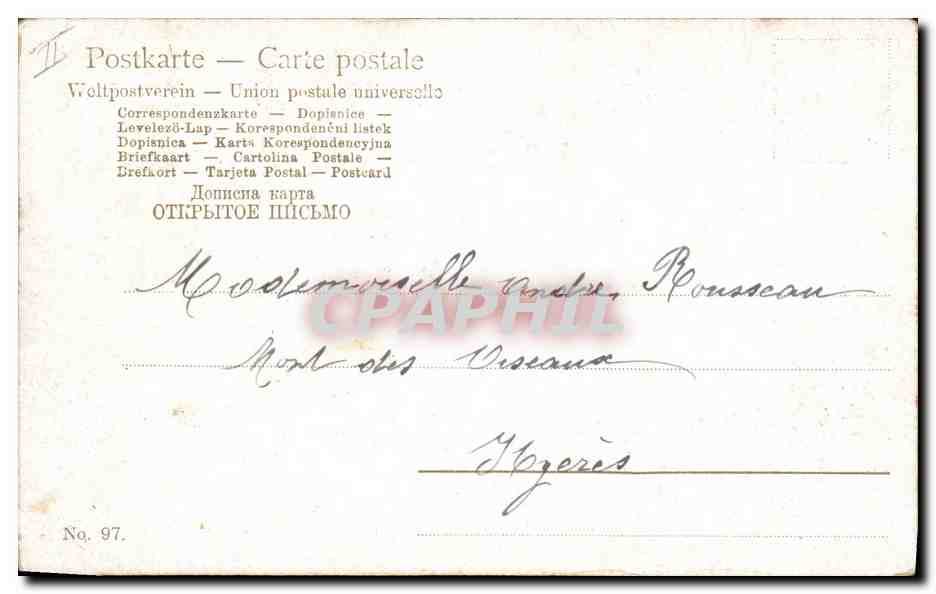 II
Postkarte — Carte postale
Weltpostverein — Union postale universelle
Correspondenzkarte — Dopisnice —
Levelezö-Lap — Korespondenčni listek
Dopisnica — Karta Korespondencyjna
Briefkaart — Cartolina Postale —
Brefkort — Tarjeta Postal — Postcard
Дописна карта
ОТКРЫТОЕ ПИСЬМО
Mademoiselle Rousseau
CPAPHIL
Mont des Oiseaux
Hyères
No. 97.